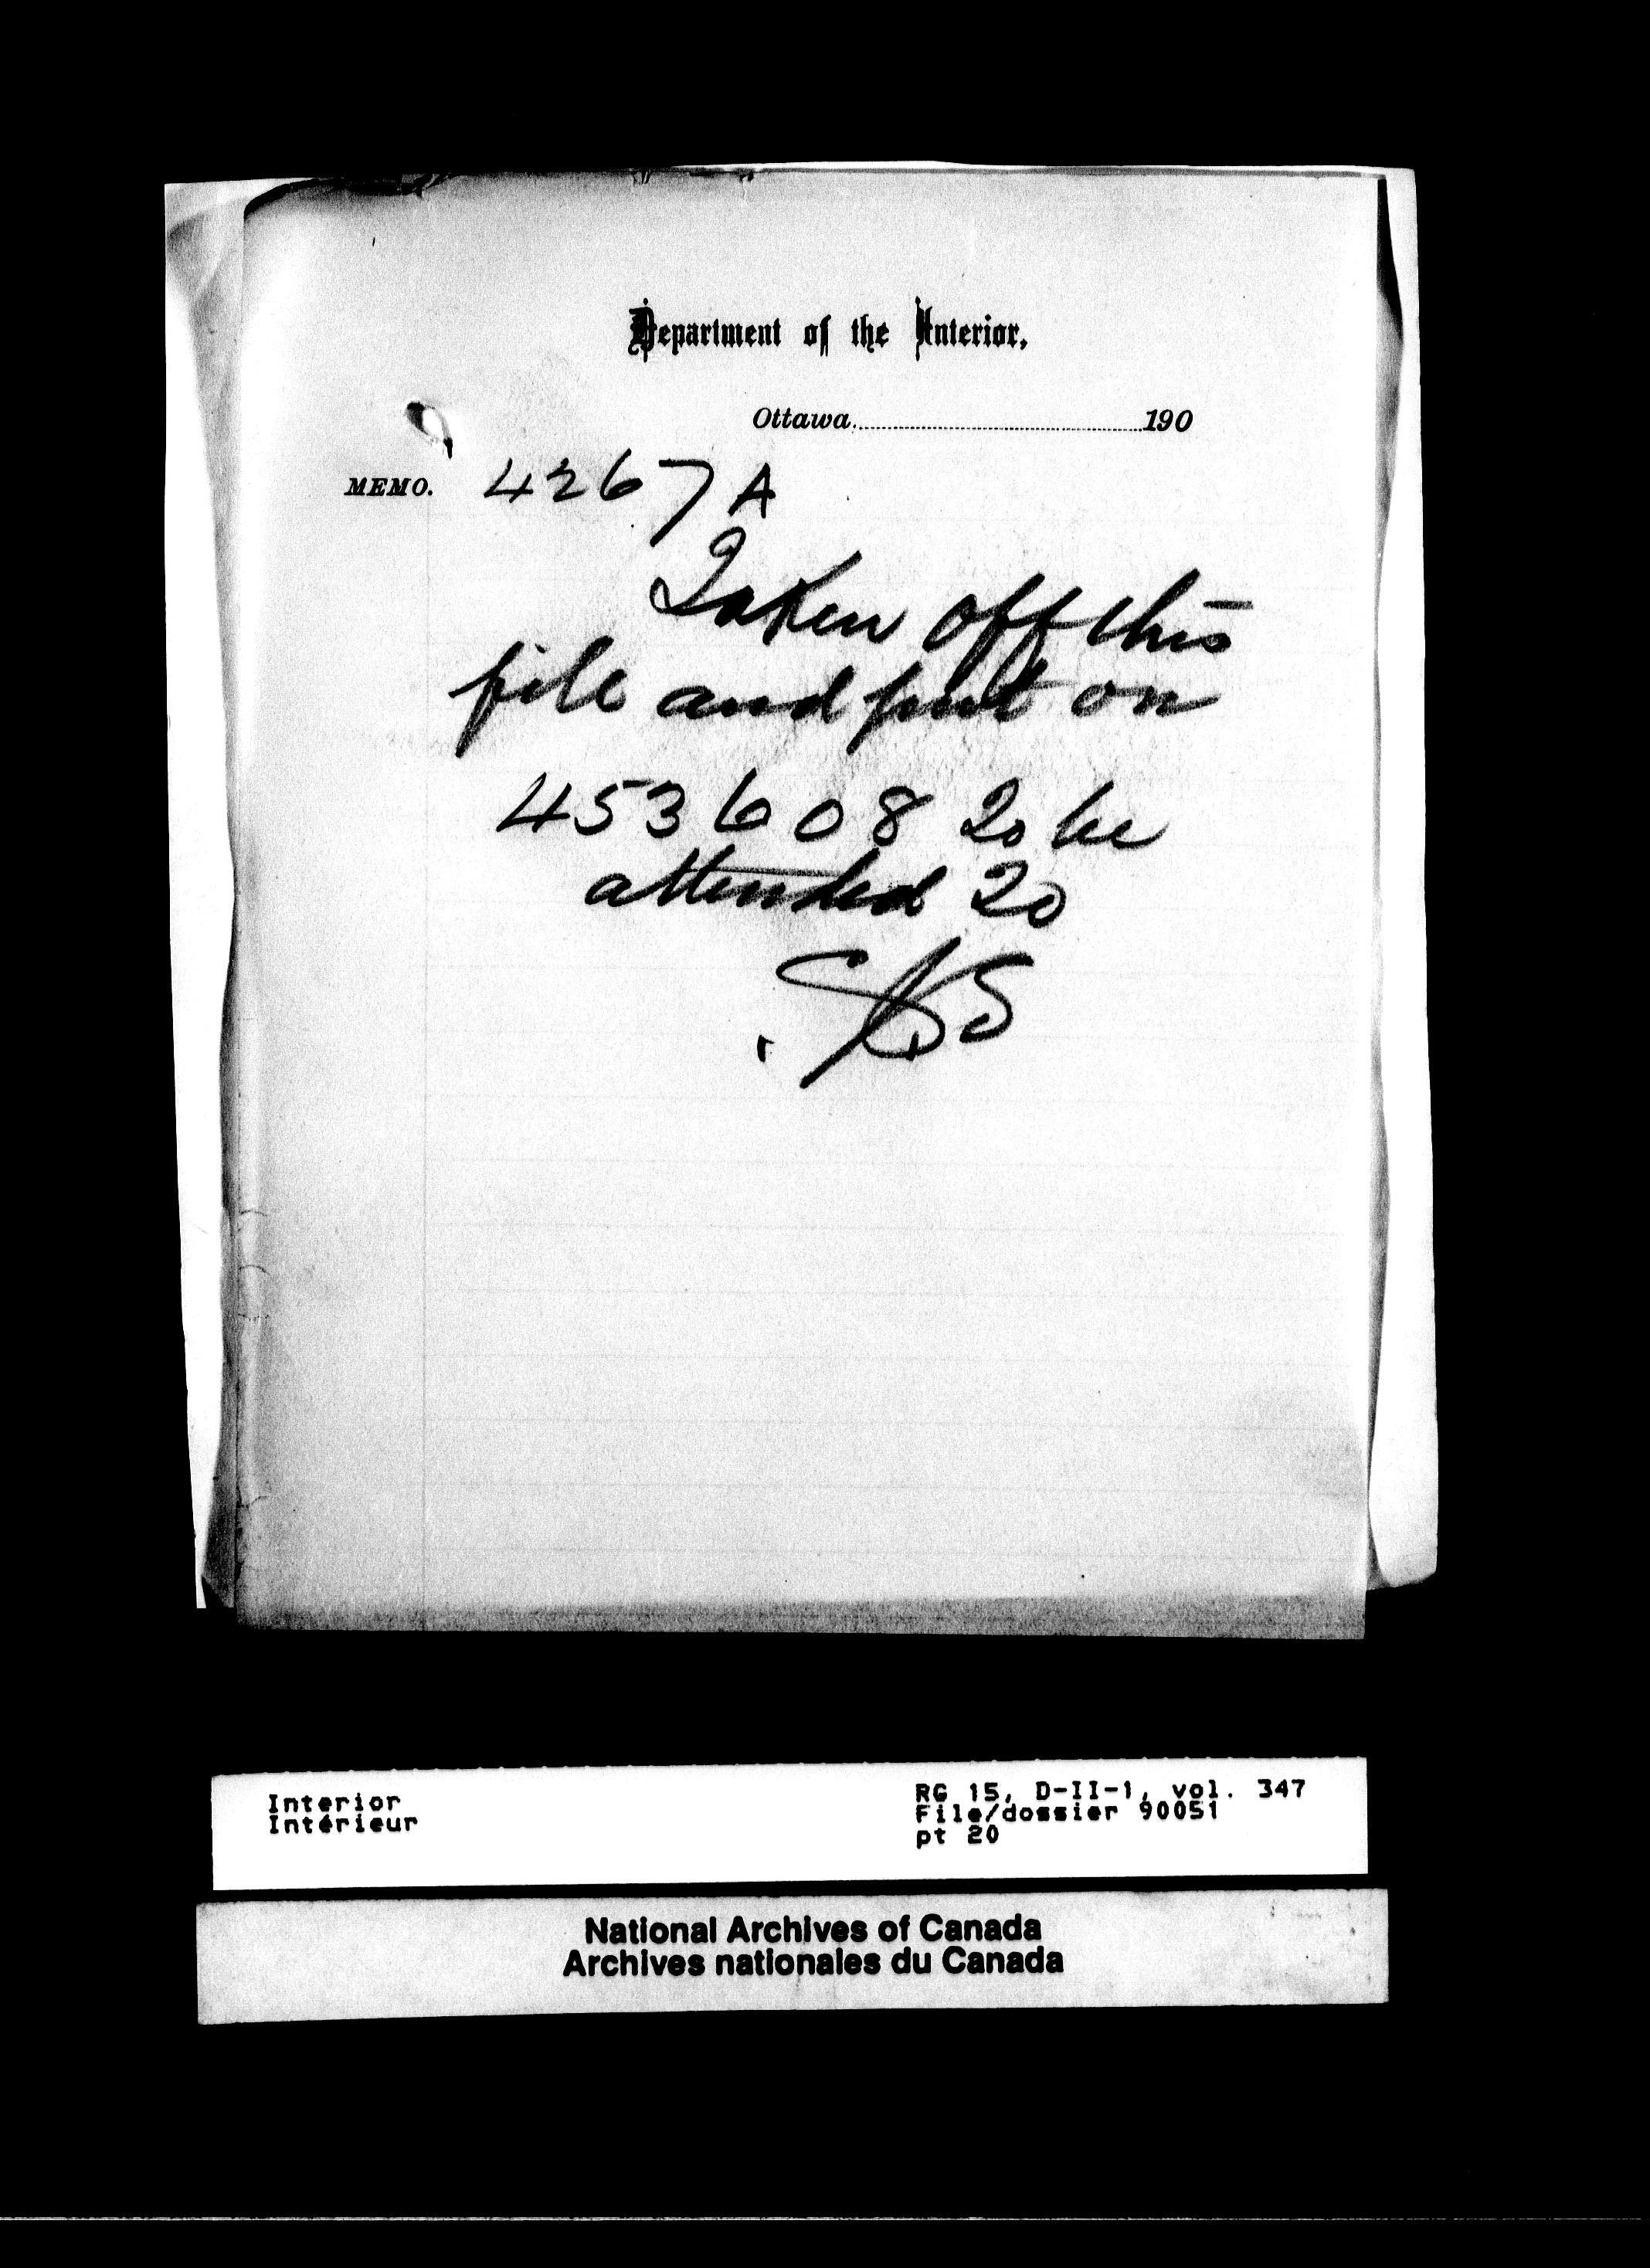 Department of the Interior,
Ottawa. 190
MEMO. 4267 A
Taken off this
file and put on
453608 To be
attended To
Interior
Intérieur
RG 15, D-II-1, vol. 347
File/dossier 90051
pt 20
National Archives of Canada
Archives nationales du Canada